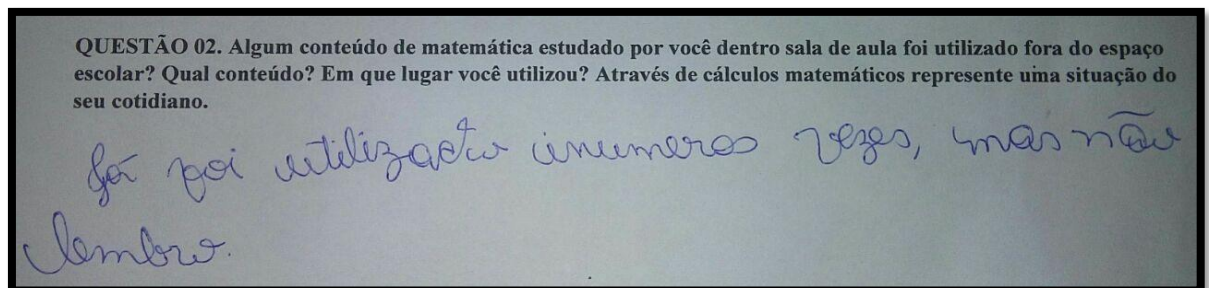 QUESTÃO 02. Algum conteúdo de matemática estudado por você dentro sala de aula foi utilizado fora do espaço
escolar? Qual conteúdo? Em que lugar você utilizou? Através de cálculos matemáticos represente uma situação do
seu cotidiano.
Já foi utilizado inumeros vezes, mas não
lembro.